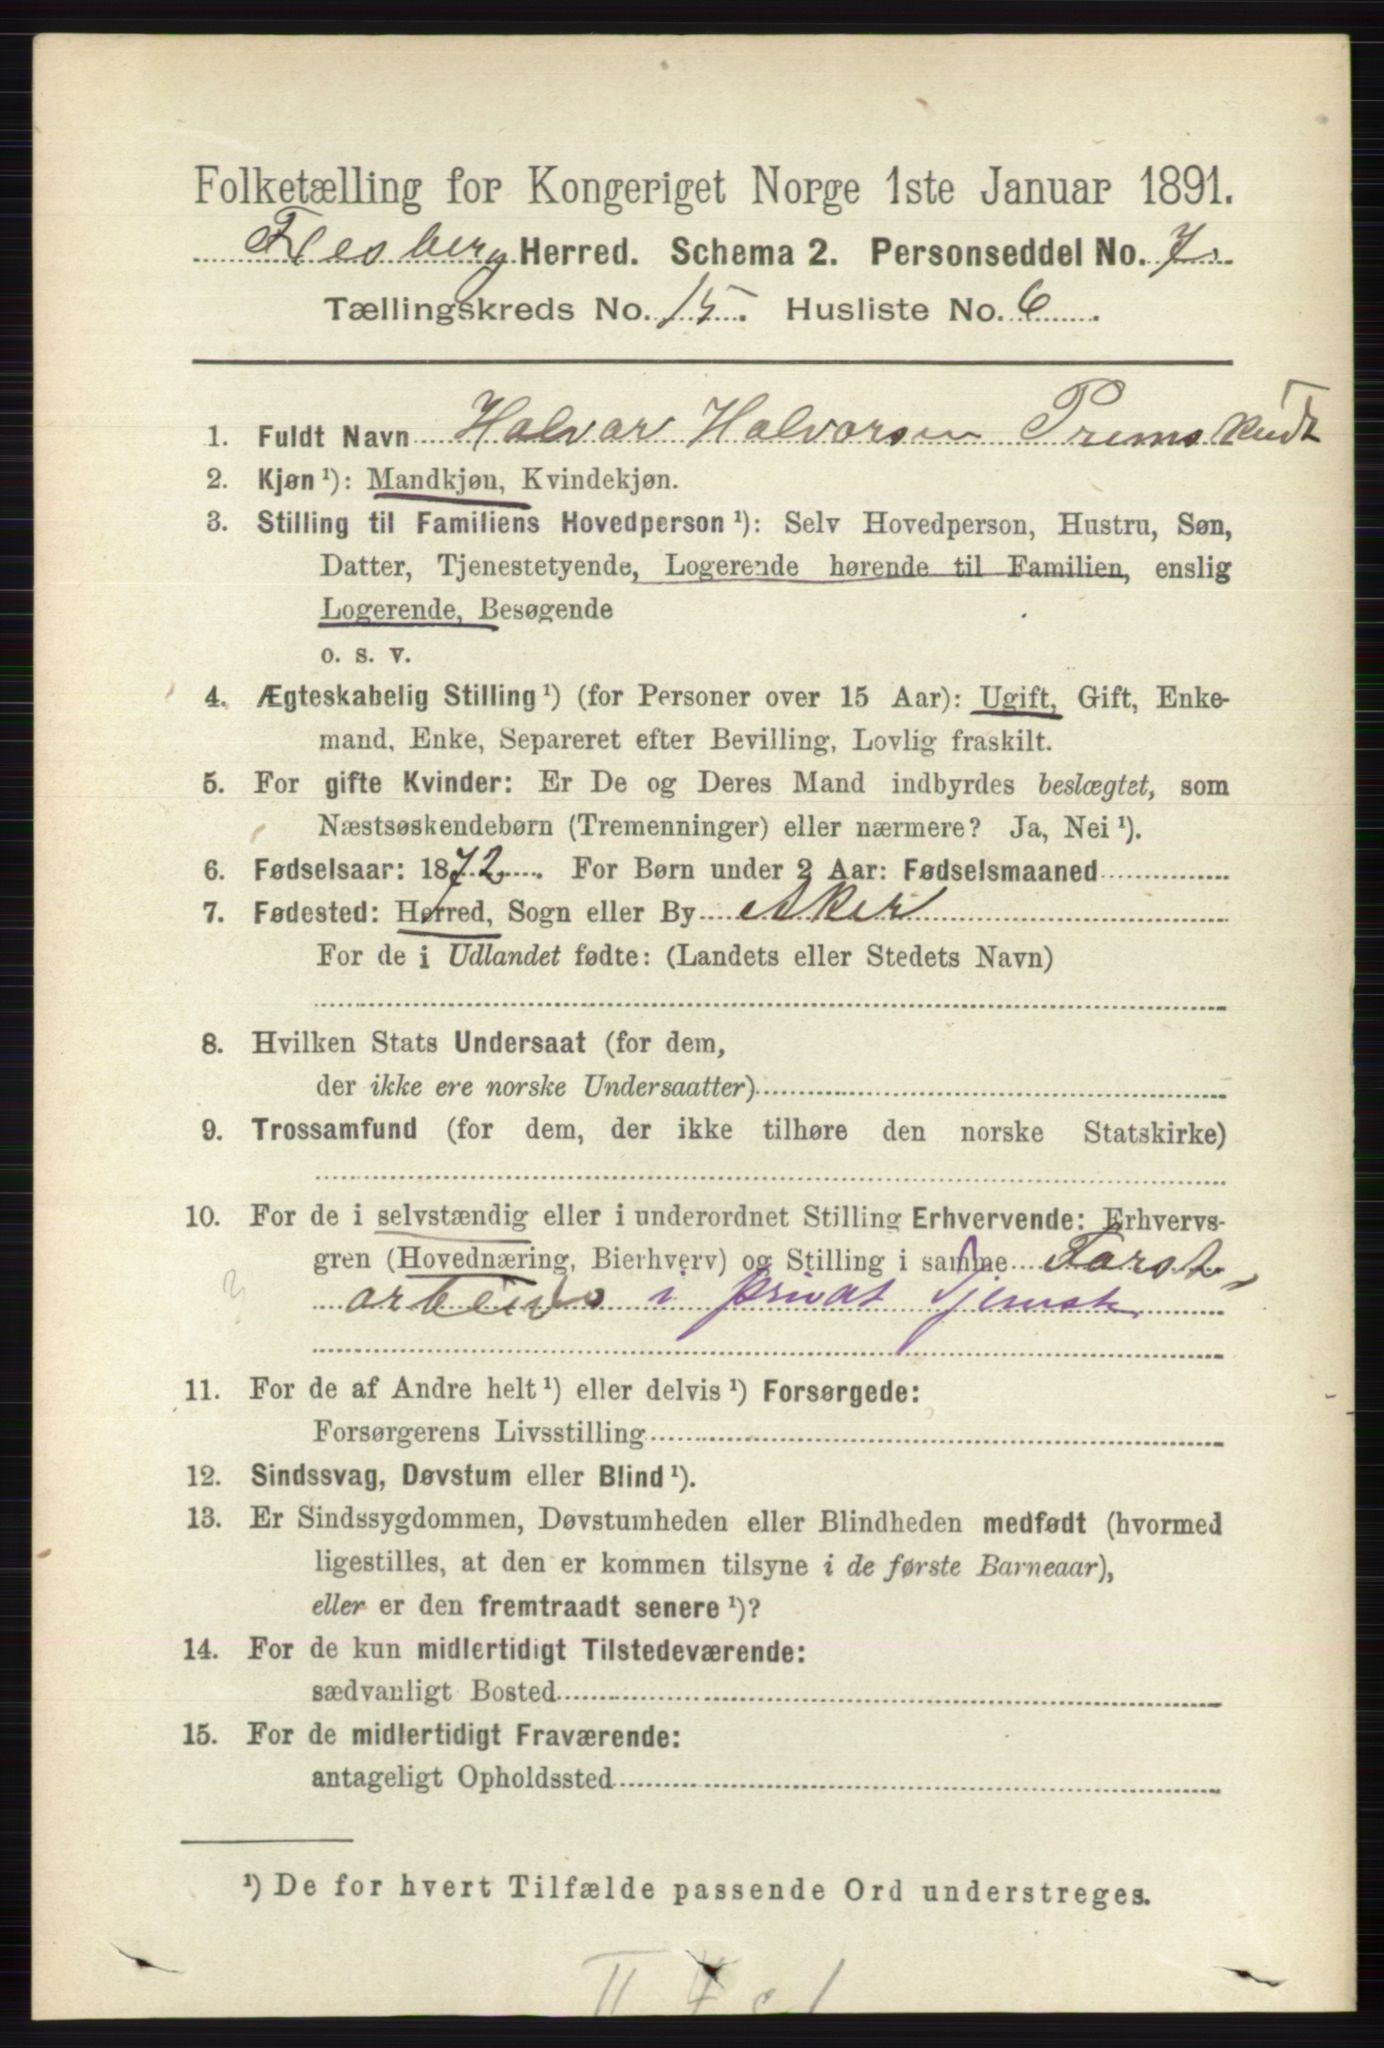 Folketælling for Kongeriget Norge 1ste Januar 1891.
Flesberg Herred. Schema 2. Personseddel No. 7.
Tællingskreds No. 15. Husliste No. 6.
1. Fuldt Navn Halvar Halvorsen
2. Kjøn ¹): Mandkjøn, Kvindekjøn.
3. Stilling til Familiens Hovedperson ¹): Selv Hovedperson, Hustru, Søn,
Datter, Tjenestetyende, Logerende hørende til Familien, enslig
Logerende, Besøgende
o. s. v.
4. Ægteskabelig Stilling ¹) (for Personer over 15 Aar): Ugift, Gift, Enke-
mand, Enke, Separeret efter Bevilling, Lovlig fraskilt.
5. For gifte Kvinder: Er De og Deres Mand indbyrdes beslægtet, som
Næstsøskendebørn (Tremenninger) eller nærmere? Ja, Nei ¹).
6. Fødselsaar: 1872. For Børn under 2 Aar: Fødselsmaaned
7. Fødested: Herred, Sogn eller By Aker
For de i Udlandet fødte: (Landets eller Stedets Navn)
8. Hvilken Stats Undersaat (for dem,
der ikke ere norske Undersaatter)
9. Trossamfund (for dem, der ikke tilhøre den norske Statskirke)
10. For de i selvstændig eller i underordnet Stilling Erhvervende: Erhvervs-
gren (Hovednæring, Bierhverv) og Stilling i samme Forst-
arbeide i privat Tjeneste
11. For de af Andre helt ¹) eller delvis ¹) Forsørgede:
Forsørgerens Livsstilling
12. Sindssvag, Døvstum eller Blind ¹).
13. Er Sindssygdommen, Døvstumheden eller Blindheden medfødt (hvormed
ligestilles, at den er kommen tilsyne i de første Barneaar),
eller er den fremtraadt senere ¹)?
14. For de kun midlertidigt Tilstedeværende:
sædvanligt Bosted
15. For de midlertidigt Fraværende:
antageligt Opholdssted
¹) De for hvert Tilfælde passende Ord understreges.